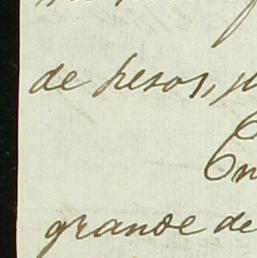 de pesos,
En
grande de